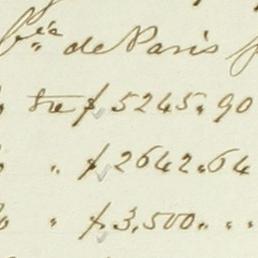 de Paris
f 5245.90
" f 2642.64
" f 3,500 " "